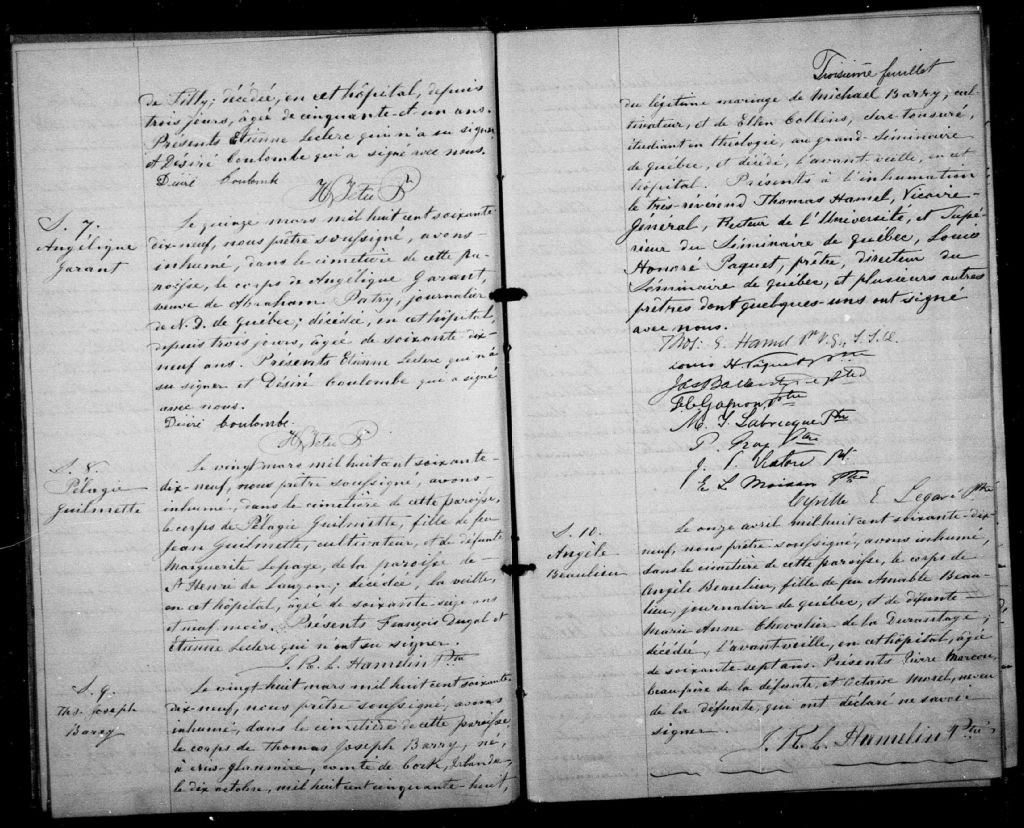 de Tilly; décédée, en cet hôpital, depuis
trois jours, agée de cinquante-et-un ans.
Présents Etienne Leclerc qui n'a su signer
et Désiré Coulombe qui a signé avec nous.
Désiré Coulombe
S. 7.
Angélique
Garant
Le quinze mars mil huit cent soixante-
dix-neuf, nous prêtre soussigné, avons-
inhumé, dans le cimetière de cette pa-
roisse, le corps de Angélique Garant,
veuve de Abraham Patry, journalier
de N. D. de Québec; décédée, en cet hôpital,
depuis trois jours, agée de soixante-dix-
neuf ans. Présents Etienne Leclerc qui n'a
su signer et Désiré Coulombe qui a signé
avec nous.
Désiré Coulombe.
S. 8.
Pélagie
Guilmette
Le vingt mars mil huit cent soixante-
dix-neuf, nous prêtre soussigné, avons-
inhumé, dans le cimetière de cette paroisse,
le corps de Pélagie Guilmette, fille de feu
Jean Guilmette, cultivateur, et de défunte
Marguerite Lepage, de la paroisse de
St Henri de Lauzon; décédée, la veille,
en cet hôpital, agée de soixante-seize ans
et neuf mois. Présents François Dugal et
Etienne Leclerc qui n'ont su signer.
J. R. L. Hamelin Ptre
S. 9.
Ths. Joseph
Barry
Le vingt-huit mars mil huit cent soixante
dix-neuf, nous prêtre soussigné, avons
inhumé, dans le cimetière de cette paroisse,
le corps de Thomas Joseph Barry, né,
à comté de Cork, Irlande,
le dix octobre, mil huit cent cinquante-huit,
Troisième feuillet
du légitime mariage de Michael Barry, cul-
tivateur, et de Ellen Collins; clerc-tonsuré,
étudiant en théologie, au grand Séminaire
de Québec, et décédé, l'avant-veille, en cet
hôpital. Présents à l'inhumation
le très-révérend Thomas Hamel, Vicaire-
Général, Recteur de l'Université, et Supé-
rieur du Séminaire de Québec, Louis
Honoré Paquet, prêtre, directeur du
Séminaire de Québec, et plusieurs autres
prêtres dont quelques-uns ont signé
avec nous.
Thos. E. Hamel Ptr V.G., S.S.Q.
Louis H. Paquet ptre
Gagnon Ptre
M. F. Labrecque Ptre
P. Roy Ptre
J.
E L Moisan Ptre
Cyrille E. Legaré Ptre
S. 10.
Angèle
Beaulieu
Le onze avril mil huit cent soixante-dix
neuf, nous prêtre soussigné, avons inhumé,
dans le cimetière de cette paroisse, le corps de
Angèle Beaulieu, fille de feu Amable Beau-
lieu, journalier de Québec, et de défunte-
Marie Anne Chevalier de la Durantaye;
décédée, l'avant veille, en cet hôpital, agée
de soixante-sept ans. Présents Pierre Marceau,
beau-frère de la défunte, et Octave Morel, neveu
de la défunte, qui ont déclaré ne savoir
signer.
J. R. L. Hamelin Ptre